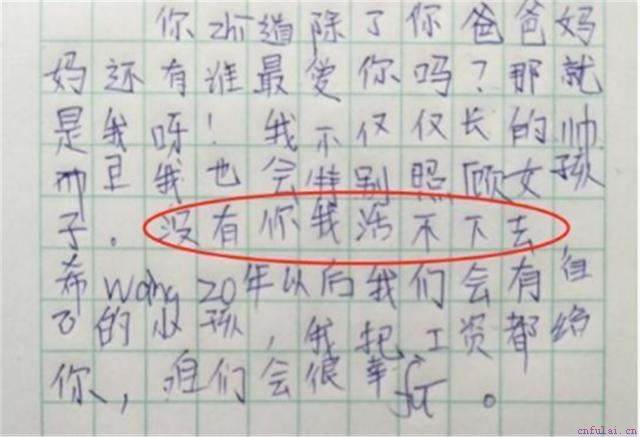 你zhī道除了你爸爸妈
妈还有谁最爱你吗？那就
是我呀！我不仅仅长的帅
而且我也会特别照顾女孩
子。没有你我活不下去
希wàng20年以后我们会有自
己的小孩，我把工资都给
你，咱们会很幸fú。
cnfulai.cn